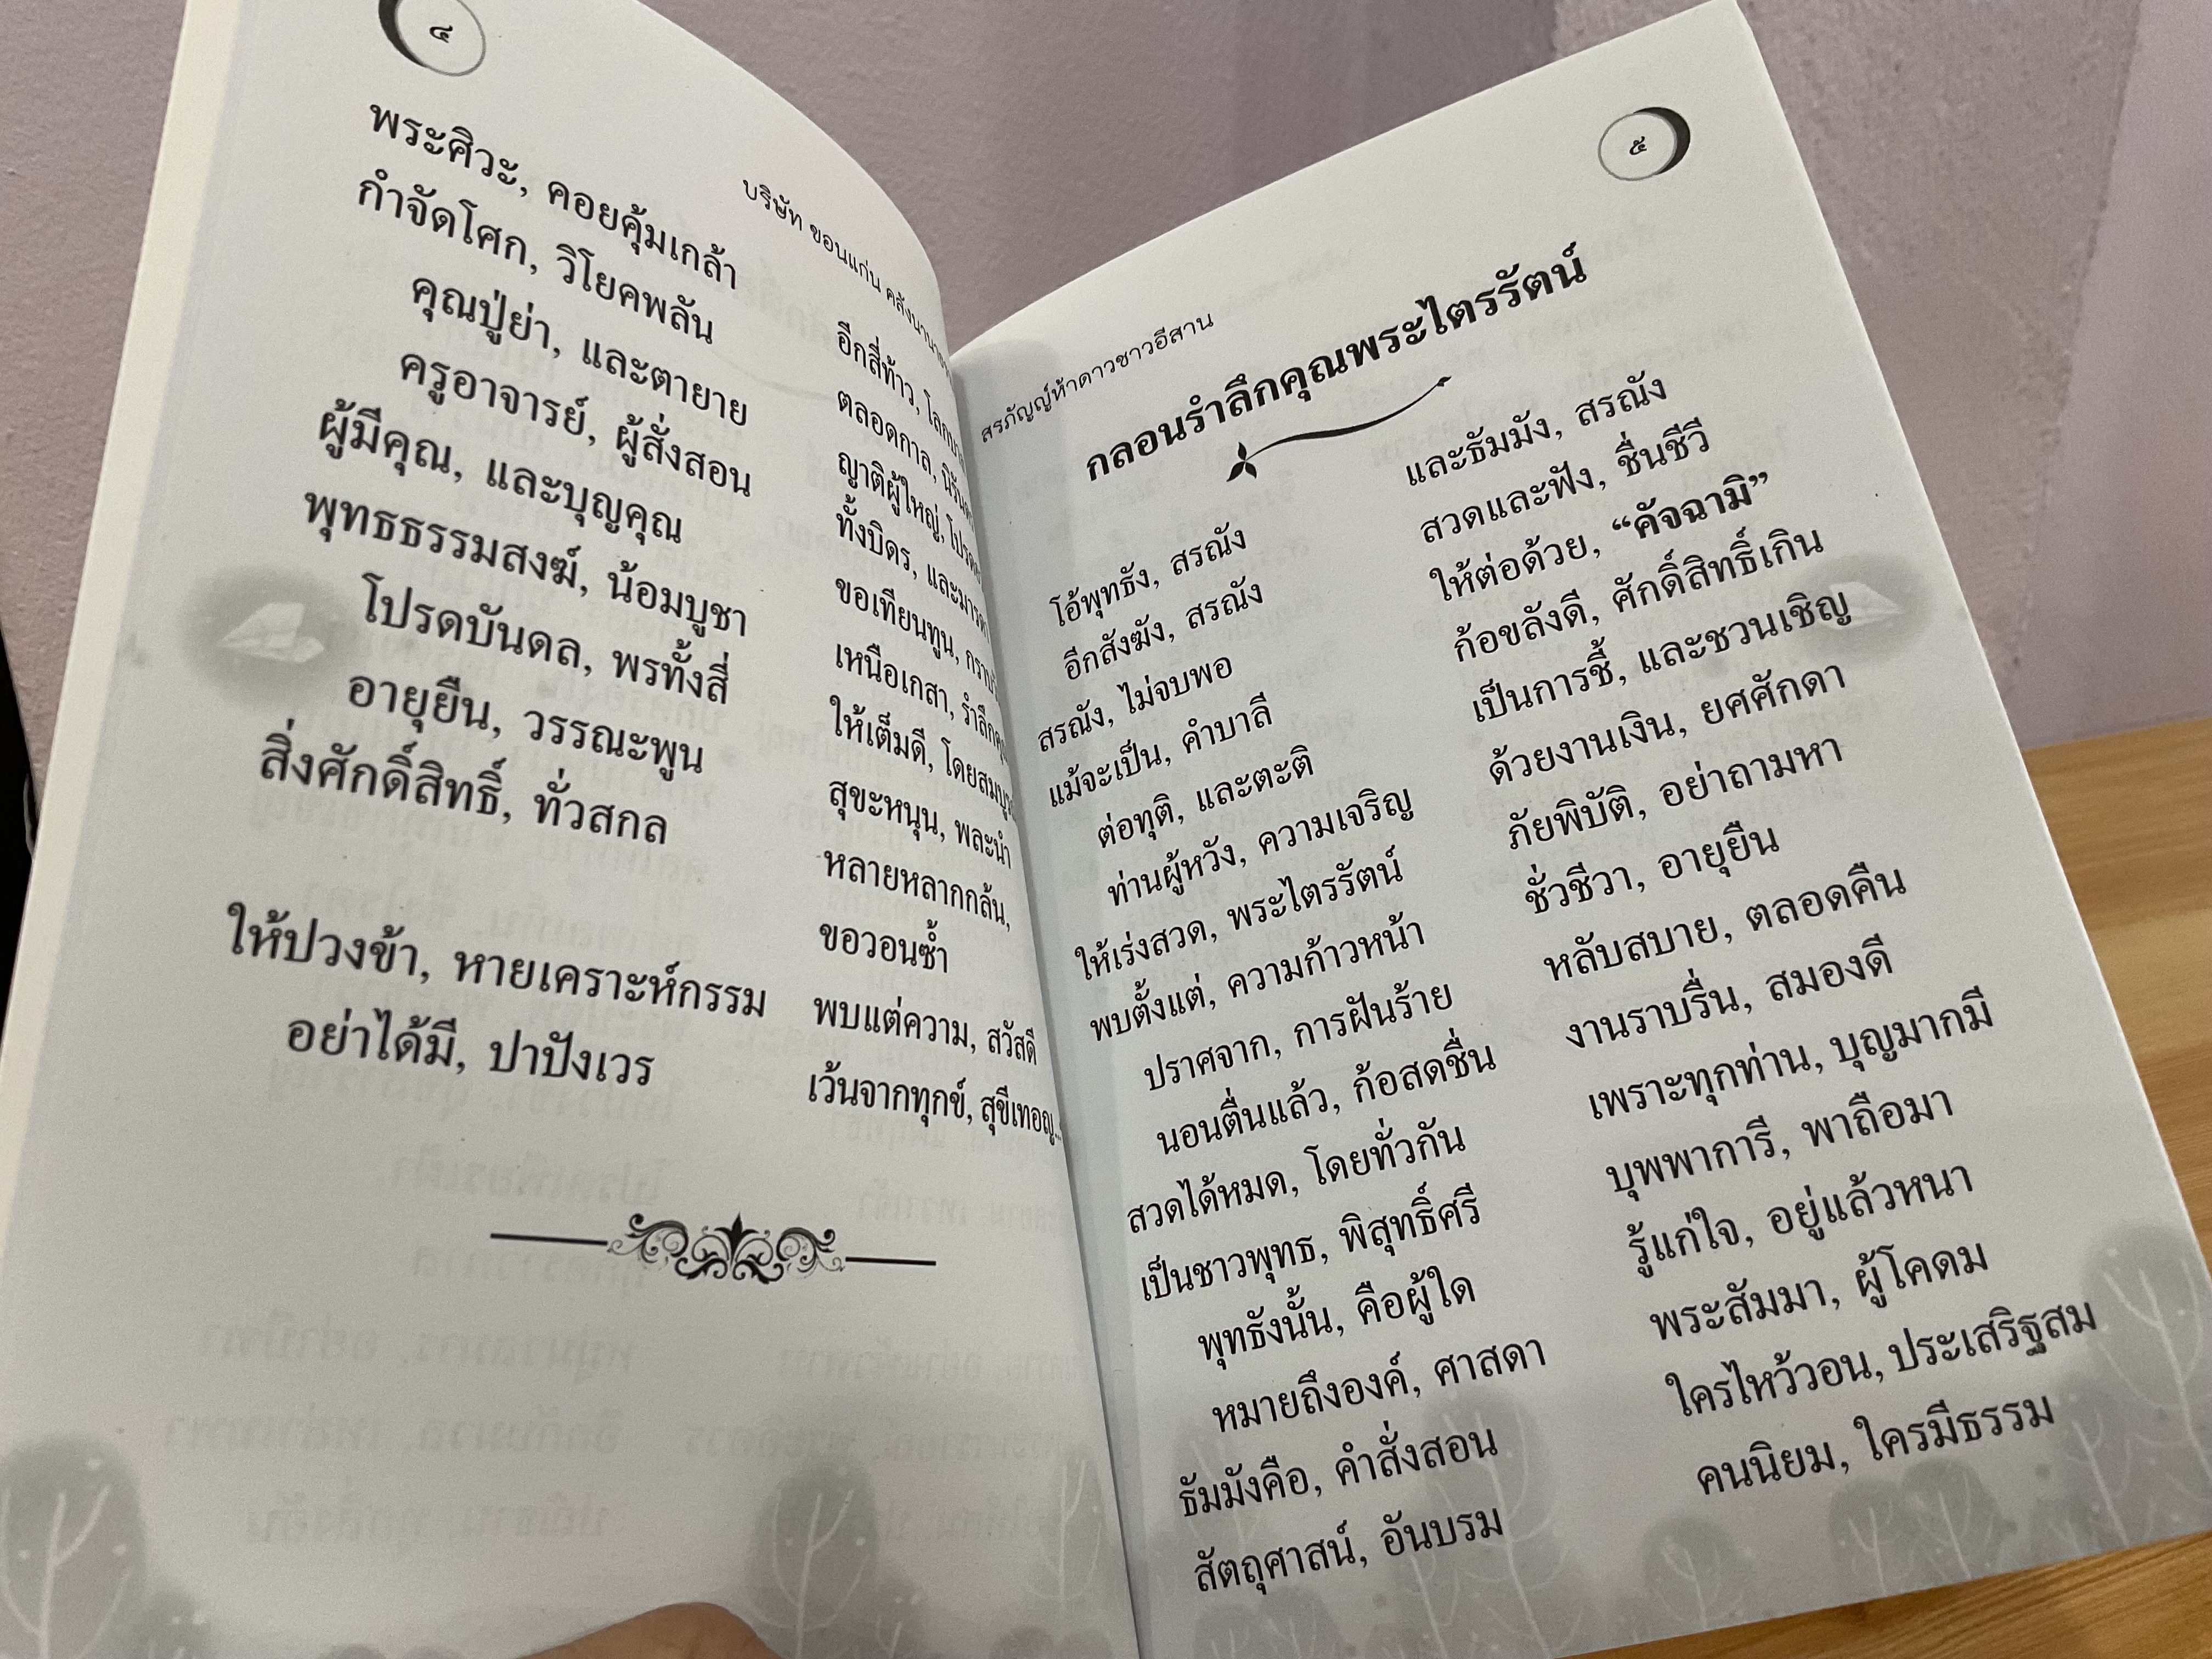 ๔
บริษัท ขอนแก่น คลังนานาธรรม
พระศิวะ, คอยคุ้มเกล้า
อีกสี่ท้าว, โลกบาล
กำจัดโศก, วิโยคพลัน
ตลอดกาล, นิรันดร
คุณปู่ย่า, และตายาย
ญาติผู้ใหญ่,
ครูอาจารย์, ผู้สั่งสอน
ทั้งบิดร, และมารดา
ผู้มีคุณ, และบุญคุณ
ขอเทียนทูน,
พุทธธรรมสงฆ์, น้อมบูชา
เหนือเกสา, รำลึกคุณ
โปรดบันดล, พรทั้งสี่
ให้เต็มดี, โดยสมบูรณ์
อายุยืน, วรรณะพูน
สุขะหนุน, พละนำ
สิ่งศักดิ์สิทธิ์, ทั่วสกล
หลายหลากกล้น,
ขอวอนซ้ำ
ให้ปวงข้า, หายเคราะห์กรรม
พบแต่ความ, สวัสดี
อย่าได้มี, ปาปังเวร
เว้นจากทุกข์, สุขีเทอญ..
๕
สรภัญญ์ห้าดาวชาวอีสาน
กลอนรำลึกคุณพระไตรรัตน์
โอ้พุทธัง, สรณัง
และธัมมัง, สรณัง
อีกสังฆัง, สรณัง
สวดและฟัง, ชื่นชีวี
สรณัง, ไม่จบพอ
ให้ต่อด้วย, “คัจฉามิ”
แม้จะเป็น, คำบาลี
ก้อขลังดี, ศักดิ์สิทธิ์เกิน
ต่อทุติ, และตะติ
เป็นการชี้, และชวนเชิญ
ท่านผู้หวัง, ความเจริญ
ด้วยงานเงิน, ยศศักดา
ให้เร่งสวด, พระไตรรัตน์
ภัยพิบัติ, อย่าถามหา
พบตั้งแต่, ความก้าวหน้า
ชั่วชีวา, อายุยืน
ปราศจาก, การฝันร้าย
หลับสบาย, ตลอดคืน
นอนตื่นแล้ว, ก้อสดชื่น
งานราบรื่น, สมองดี
สวดได้หมด, โดยทั่วกัน
เพราะทุกท่าน, บุญมากมี
เป็นชาวพุทธ, พิสุทธิ์ศรี
บุพพาการี, พาถือมา
พุทธังนั้น, คือผู้ใด
รู้แก่ใจ, อยู่แล้วหนา
หมายถึงองค์, ศาสดา
พระสัมมา, ผู้โคดม
ธัมมังคือ, คำสั่งสอน
ใครไหว้วอน, ประเสริฐสม
สัตถุศาสน์, อันบรม
คนนิยม, ใครมีธรรม